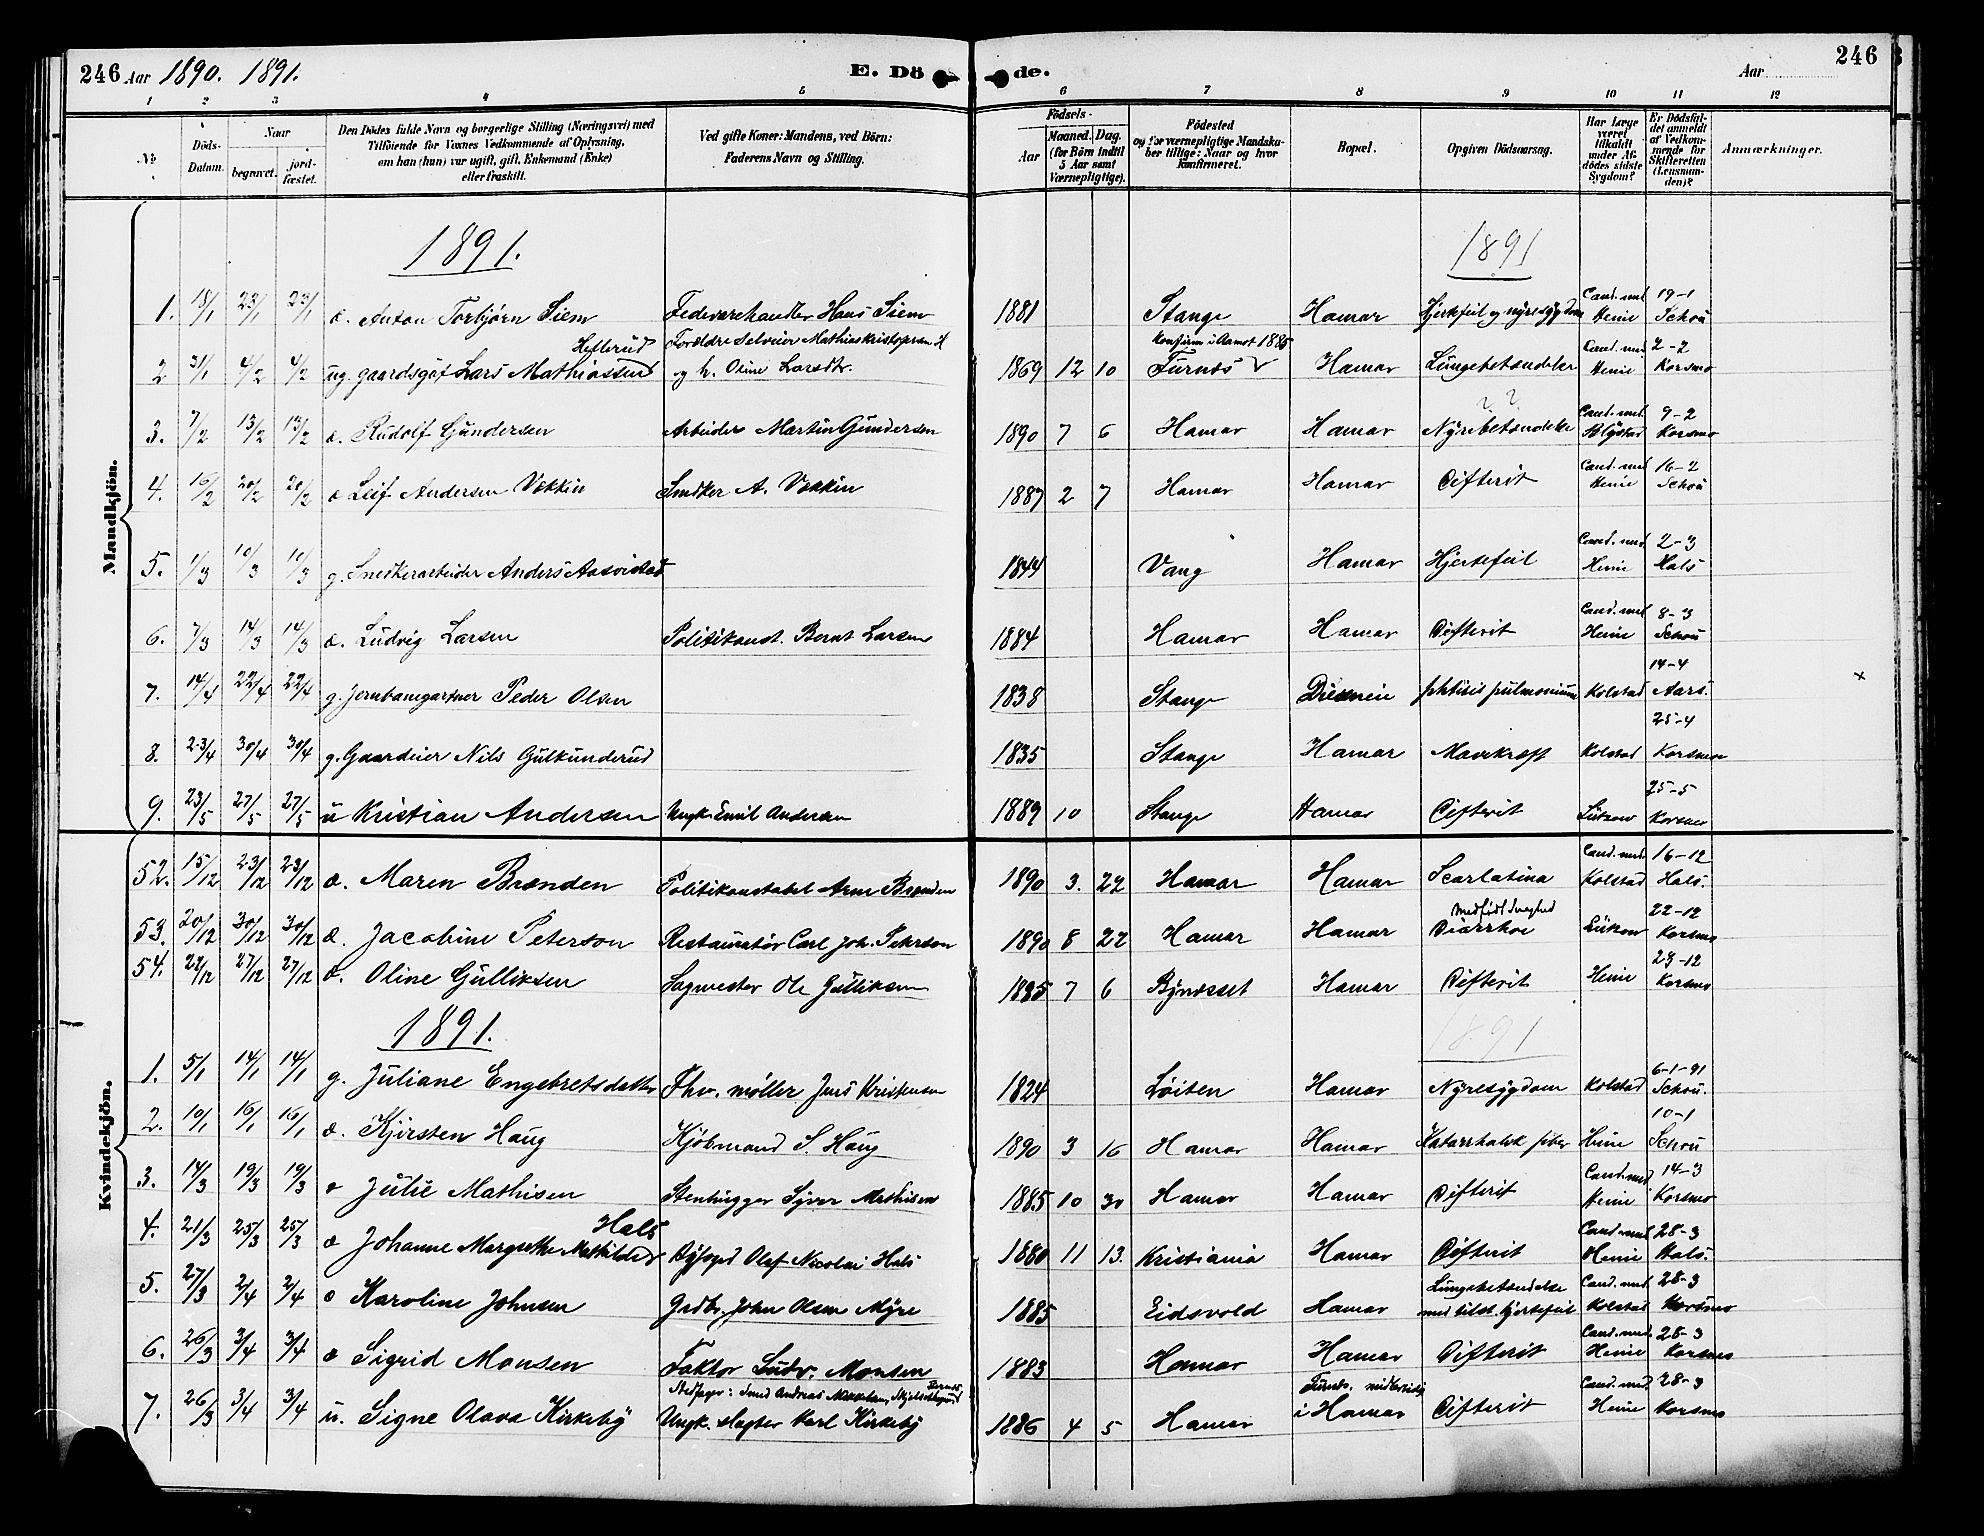 246 Aar 1890. 1891.
E. Dö de.
Aar 246
1 2 3 4 5 6 7 8 9 10 11 12
No
Döds-Datum.
Naar
begravet.
jord-fæstet.
Den Dödes fulde Navn og borgerlige Stilling (Næringsvei) med
Tilföiende for Voxnes Vedkommende af Oplysning,
om han (hun) var ugift, gift, Enkemand (Enke)
eller fraskilt.
Ved gifte Koner: Mandens, ved Börn:
Faderens Navn og Stilling.
Födsels-
Aar
Maaned. Dag.
(for Börn indtil
5 Aar samt
Værnepligtige).
Födested
og for værnepligtige Mandska-
ber tillige: Naar og hvor
konfirmeret.
Bopæl.
Opgiven Dödsaarsag.
Har Læge
været
tilkaldt
under Af-
dödes sidste
Sygdom?
Er Dödsfal-
det anmeldt
af Vedkom-
mende for
Skifteretten
(Lensman-
den)?
Anmærkninger.
Mandkjön.
1891. 1891
1. 18/1 23/1 23/1 Anton Torbjørn Siem Fedevarehandler Hans Siem 1881 Stange Hamar Cand. med Heine 19-1 Schou
2 31/1 4/2 4/2 ug. Lars Mathiassen og h. Oline Larsdtr. 1869 12 10 konfirm i Aamot 1885 Furnes Hamar Lungebetændelse Cand. med Heine 2-2 Korsmo
3. 7/2 13/2 13/2 Rudolf Gundersen Arbeider Martin Gundersen 1890 7 6 Hamar Hamar Nyrebetændelse ? ? Cand. med. 9-2 Korsmo
4. 16/2 20/2 20/2 Leif Andersen Vokkin Snedker A. Vokkin 1887 2 7 Hamar Hamar Difterit Cand. med Heine 16-2 Schou
5. 1/3 10/3 10/3 g. Snedkerarbeider Anders 1844 Vang Hamar Hjertefeil Cand. med. Heine 2-3 Hals
6. 7/3 14/3 14/3 Ludvig Larsen Politikonst. Bernt Larsen 1884 Hamar Hamar Difterit Cand. med Heine 8-3 Schou
7. 14/4 22/4 22/4 g. Jernbanegartner Peder Olsen 1838 Stange phtisis pulmonium Kolstad 14-4 Aars. x
8. 23/4 30/4 30/4 g. Gaardeier Nils Gulkunderud 1835 Stange Hamar Mavekræft Kolstad 25-4 Korsmo
9. 23/5 27/5 27/5 u Kristian Andersen Ungk. Emil Andersen 1889 10 Stange Hamar Difterit 25-5 Korsmo
Kvindekjön.
52. 15/12 23/12 23/12 Maren Brænden Politikonstabel Arne Brænden 1890 3. 22 Hamar Hamar Scarlatina Cand. med. Kolstad 16-12 Hals.
53. 20/12 30/12 30/12 Jacobine Peterson Restauratør Carl Joh. Peterson 1890 8 22 Hamar Hamar Medfødt Svaghed Diarrhoe 22-12 Korsmo
54. 22/12 27/12 27/12 Oline Gulliksen Sagmester Ole Gulliksen 1885 7 6 Bynesset Hamar Difterit Heine 23-12 Korsmo
1891. 1891
1. 5/1 14/1 14/1 g. Juliane Engebretsdatter Fhv. møller Jens Kristensen 1824 Løiten Hamar Nyresygdom Kolstad 6-1-91 Schou.
2. 10/1 16/1 16/1 Kjirsten Haug Kjøbmand S. Haug 1890 3 16 Hamar Hamar Katarrhalsk feber Heine 10-1 Schou
3. 14/3 19/3 19/3 Julie Mathisen Stenhugger Syver Mathisen 1885 10 30 Hamar Hamar Difterit Cand. med Heine 14-3 Korsmo
4. 21/3 25/3 25/3 Johanne Margrethe Mathilde Hals Byfoged Olaf Nicolai Hals 1880 11 13. Kristiania Hamar Difterit Cand. med Heine 28-3 Hals.
5. 27/3 2/4 2/4 Karoline Johnsen Grdbr. John Olsen Myre 1885 Eidsvold Hamar Lungebetændelse med tilst. hjertefeil Cand. med Kolstad 28-3 Korsmo
6. 26/3 3/4 3/4 Sigrid Monsen Faktor Ludv. Monsen 1883 Hamar Hamar Difterit Cand. med. Heine 28-3 Korsmo
7. 26/3 3/4 3/4 u. Signe Olava Kirkeby Ungk. slagter Karl Kirkeby 1886 4 5 Hamar i Hamar Difterit Cand. med. Heine 28-3 Korsmo